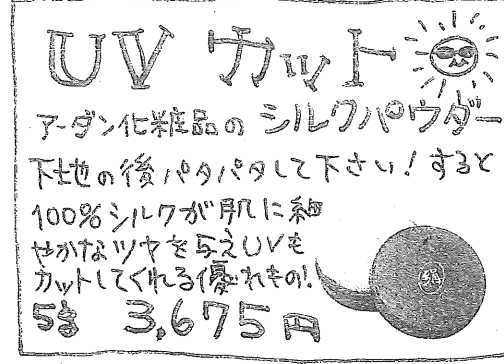 UV カット
アーダン化粧品の シルクパウダー
下地の後パタパタして下さい！すると
100%シルクが肌に細
やかなツヤを与えUVも
カットしてくれる優れもの！
5g 3,675円